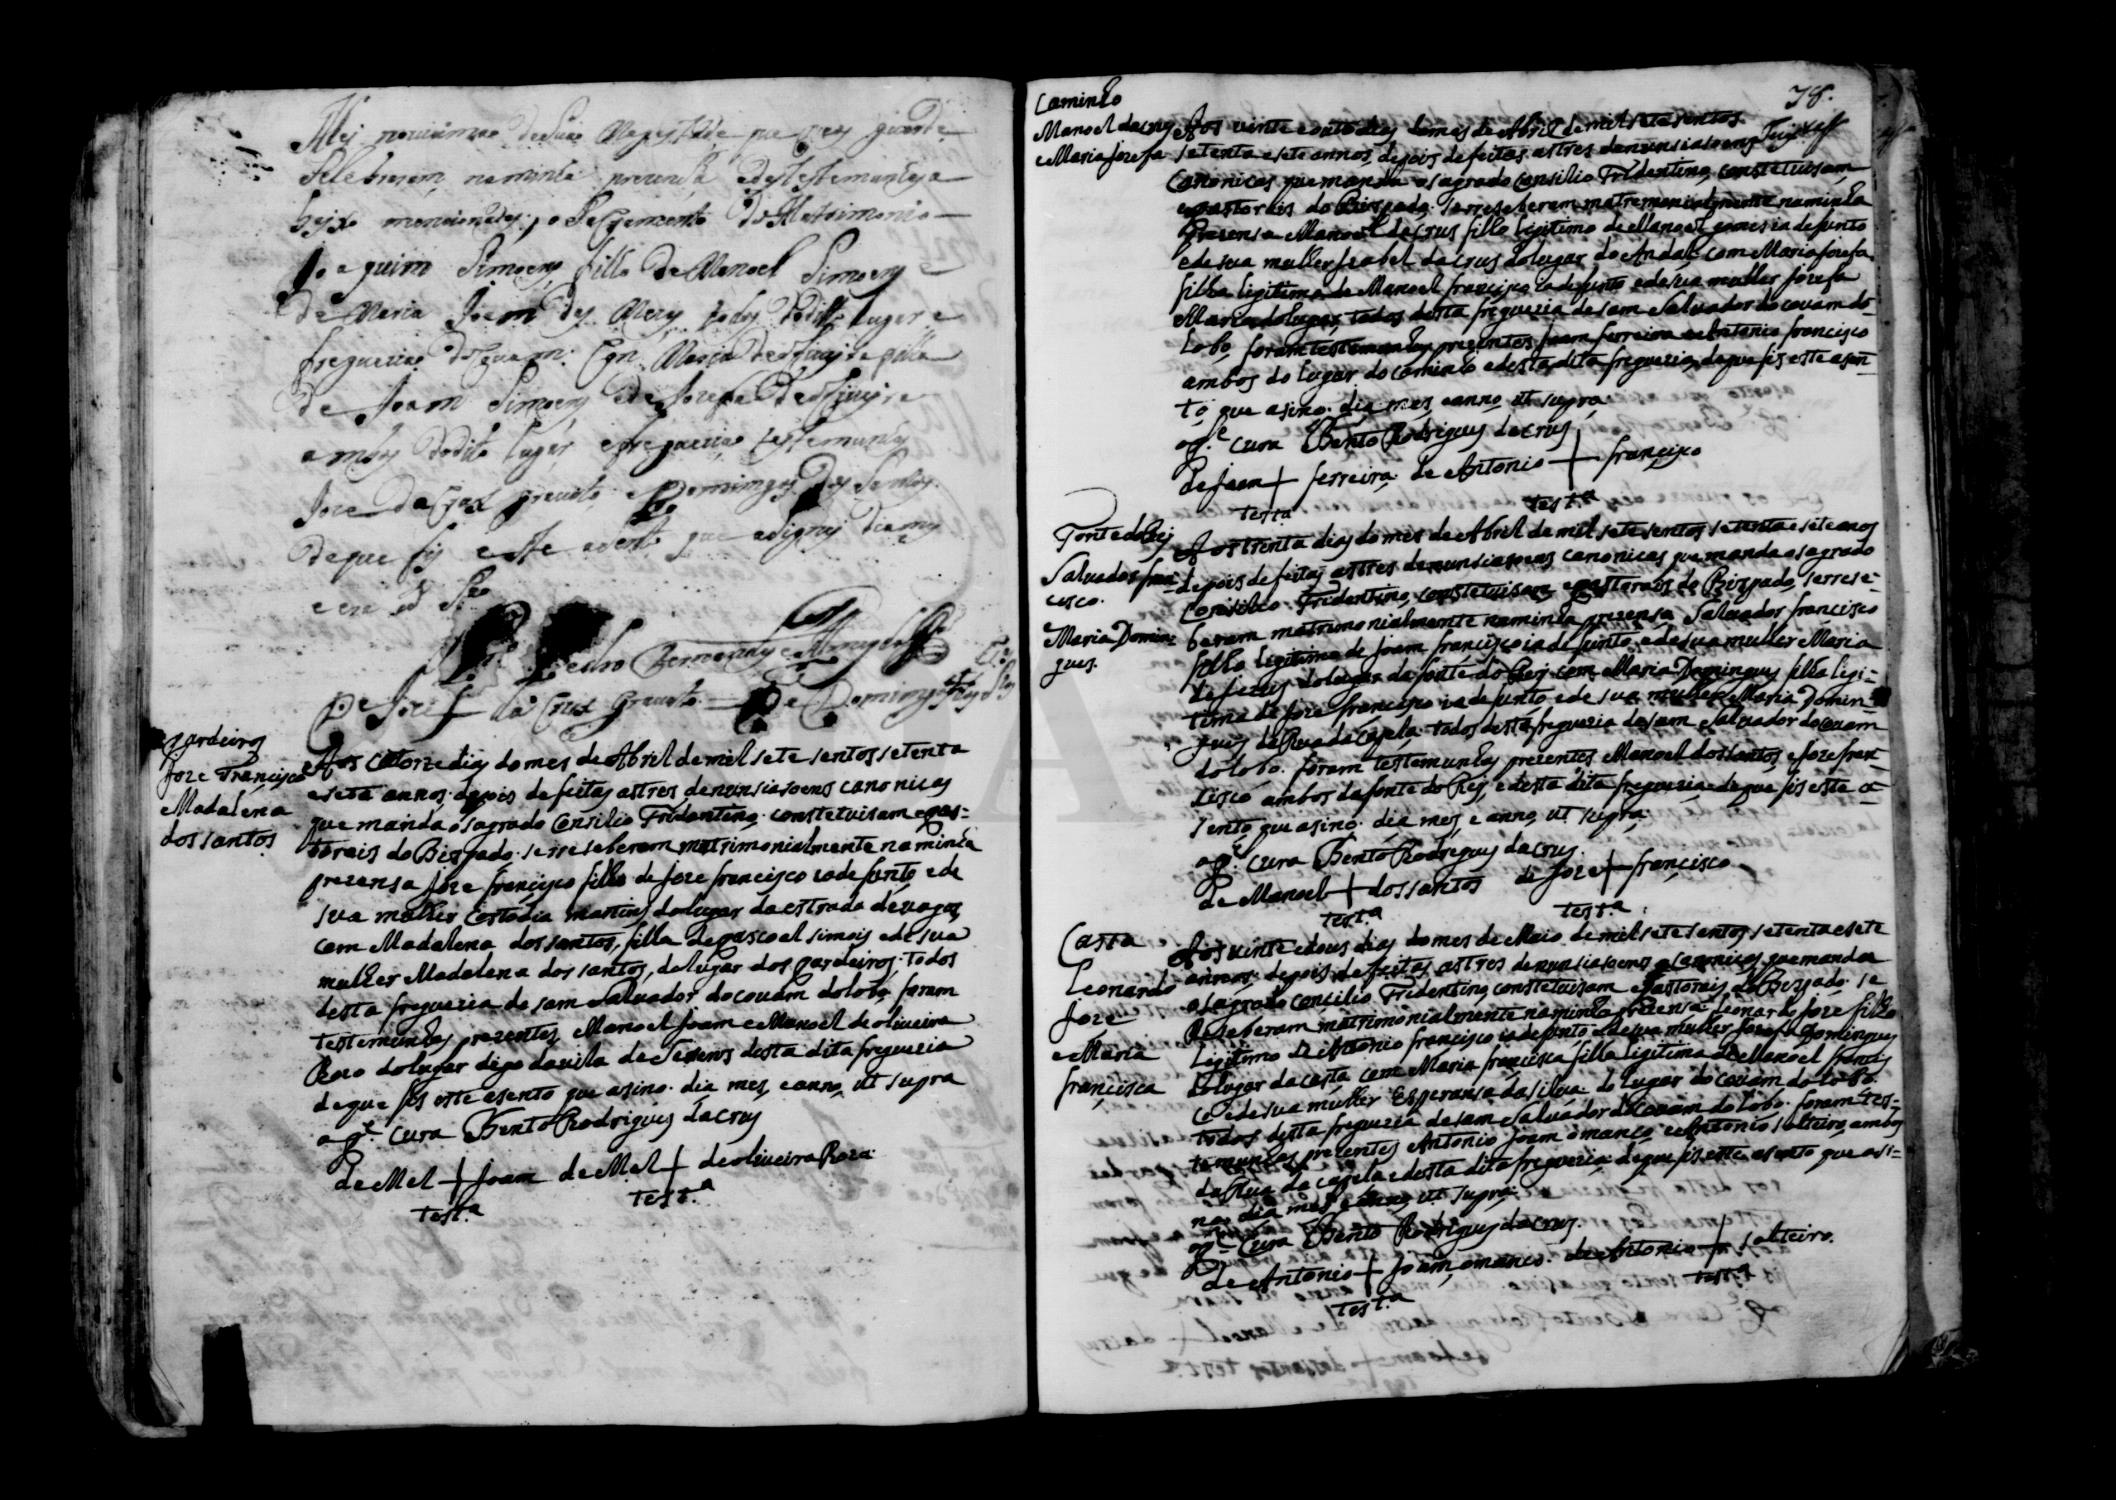 Joaquim Simoens filho de Manoel Simoens e
de Maria Joam dos
freguezia
de Joam Simoens e de Jozefa
ambos do dito lugar e freguezia testemunhas
Joze da Crus e Domingos dos Santos
de que fis este
e era ut
Pedro Fernandes
De Joze da Crus De Domingos
pardeiros
Joze Francisco
e Madalena
dos santos
Aos catorze dias do mes de Abril de mil sete sentos setenta
e sete annos depois de feitas as tres denunsiasoens canonicas
que manda o sagrado Consilio Tridentino constetuisam e pas-
torais do Bispado se reseberam matrimonialmente na minha
prezensa Joze francisco filho de Joze francisco ia defunto e de
sua mulher Costodia martins do lugar da estrada de vagos
com Madalena dos santos, filha de pascoal simois e de sua
mulher Madalena dos santos, do lugar dos pardeiros, todos
desta freguezia de sam Salvador do covam do lobo, foram
testemunhas prezentes Manoel Joam e Manoel de oliveira
Roza do lugar digo da villa de desta dita freguezia
de que fis este asento que asino dia mes, e anno, ut supra
o Pe. cura Bento Rodrigues da crus
de Mel + Joam de Mel + de oliveira Roza
test.a test.a
78.
Caminho
Manoel da crus
e Maria Jozefa
Aos vinte e outo dias do mes de Abril de mil sete sentos
setenta e sete annos, depois de feitas as tres denunsiasoens
canonicas que manda o sagrado Consilio Tridentino, constetuisam
e pastorais do Bispado se reseberam matremonialmente na minha
prezensa Manoel da crus filho legitimo de Manoel gomes ia defunto
e de sua mulher Izabel da crus do lugar do Andal, com Maria Jozefa
filha legitima de Manoel francisco ia defunto e de sua mulher Jozefa
Maria do lugar, todos desta freguezia de sam Salvador do covam do
Lobo, foram testemunhas prezentes Joam ferreira e Antonio francisco
ambos do lugar do caminho e desta dita freguezia, de que fis este asen-
to, que asino dia mes, e anno, ut supra
o Pe. cura Bento Rodrigues da crus
De Joam + ferreira de Antonio + francisco
test.a test.a
Fonte do Rej
Salvador fran-
cisco.
e
Maria Domin-
gues.
Aos trenta dias do mes de Abril de mil sete sentos setenta e sete anos
depois de feitas as tres denunsiasoens canonicas que manda o sagrado
Consilio Tridentino, constetuisam e pastorais do Bispado, se rrese-
beram matrimonialmente na minha prezensa Salvador francisco
filho legitimo de Joam francisco ia defunto, e de sua mulher Maria
de jezus do lugar da fonte do Rej com Maria Domingues filha legi-
tima de Joze francisco ia defunto e de sua mulher Maria Domin-
gues da Rua da Capela todos desta freguezia de sam Salvador do covam
do lobo. foram testemunhas prezentes Manoel dos santos e Joze fran-
cisco ambos da fonte do Rej, e desta dita freguezia, de que fis este a-
sento que asino dia mes, e anno, ut supra
o Pe. cura Bento Rodrigues da crus.
de Manoel + dos santos de Joze + francisco
test.a test.a
Costa
Leonardo
Joze
e Maria
francisca
Aos vinte e dous dias do mes de Maio de mil sete sentos setenta e sete
annos, depois de feitas as tres denunsiasoens canonicas que manda
o sagrado concilio Tridentino, constetuisam e pastorais do Bispado se
Reseberam matrimonialmente na minha prezensa Leonardo Joze filho
Legitimo de Antonio francisco ia defunto, e de sua mulher Jozefa Domingues
do lugar da costa com Maria francisca filha legitima de Manoel francis
co e de sua mulher Esperansa da silva do lugar do covam do lobo.
todos desta freguezia de sam Salvador do covam do lobo. foram tes-
temunhas prezentes Antonio Joam o manco e Antonio solteiro, ambos
da Rua da capela e desta dita freguezia, de que fis este asento que asi-
no dia mes, e anno, ut supra.
o Pe. Cura Bento Rodrigues da crus.
de Antonio + Joam, o manco. de Antonio + solteiro.
test.a test.a